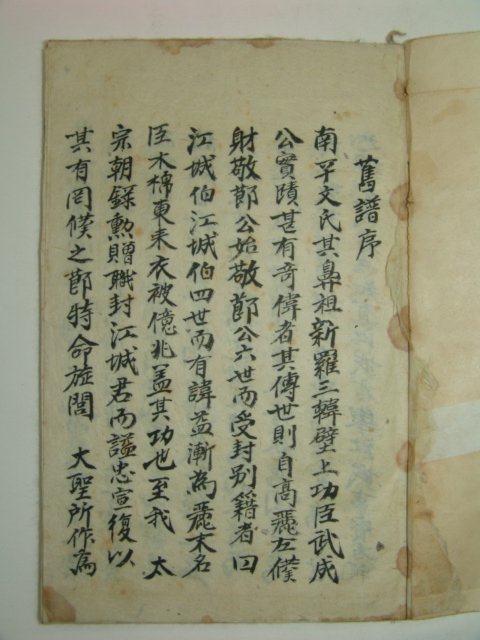 舊譜序
南平文氏其鼻祖新羅三韓壁上功臣武成
公實蹟甚有奇偉者其傳世則自高麗左僕
財敬節公始敬節公六世而受封別籍者曰
江城伯江城伯四世而有諱益漸為麗末名
臣木棉東来衣被億兆盖其功也至我 太
宗朝錄勲贈職封江城君而謚忠宣復以
其有罔僕之節特命旋閭 大聖所作為